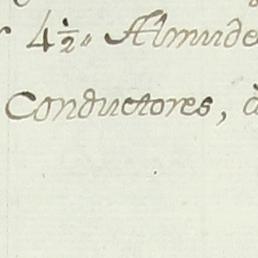 4½ Almude
Conductores,